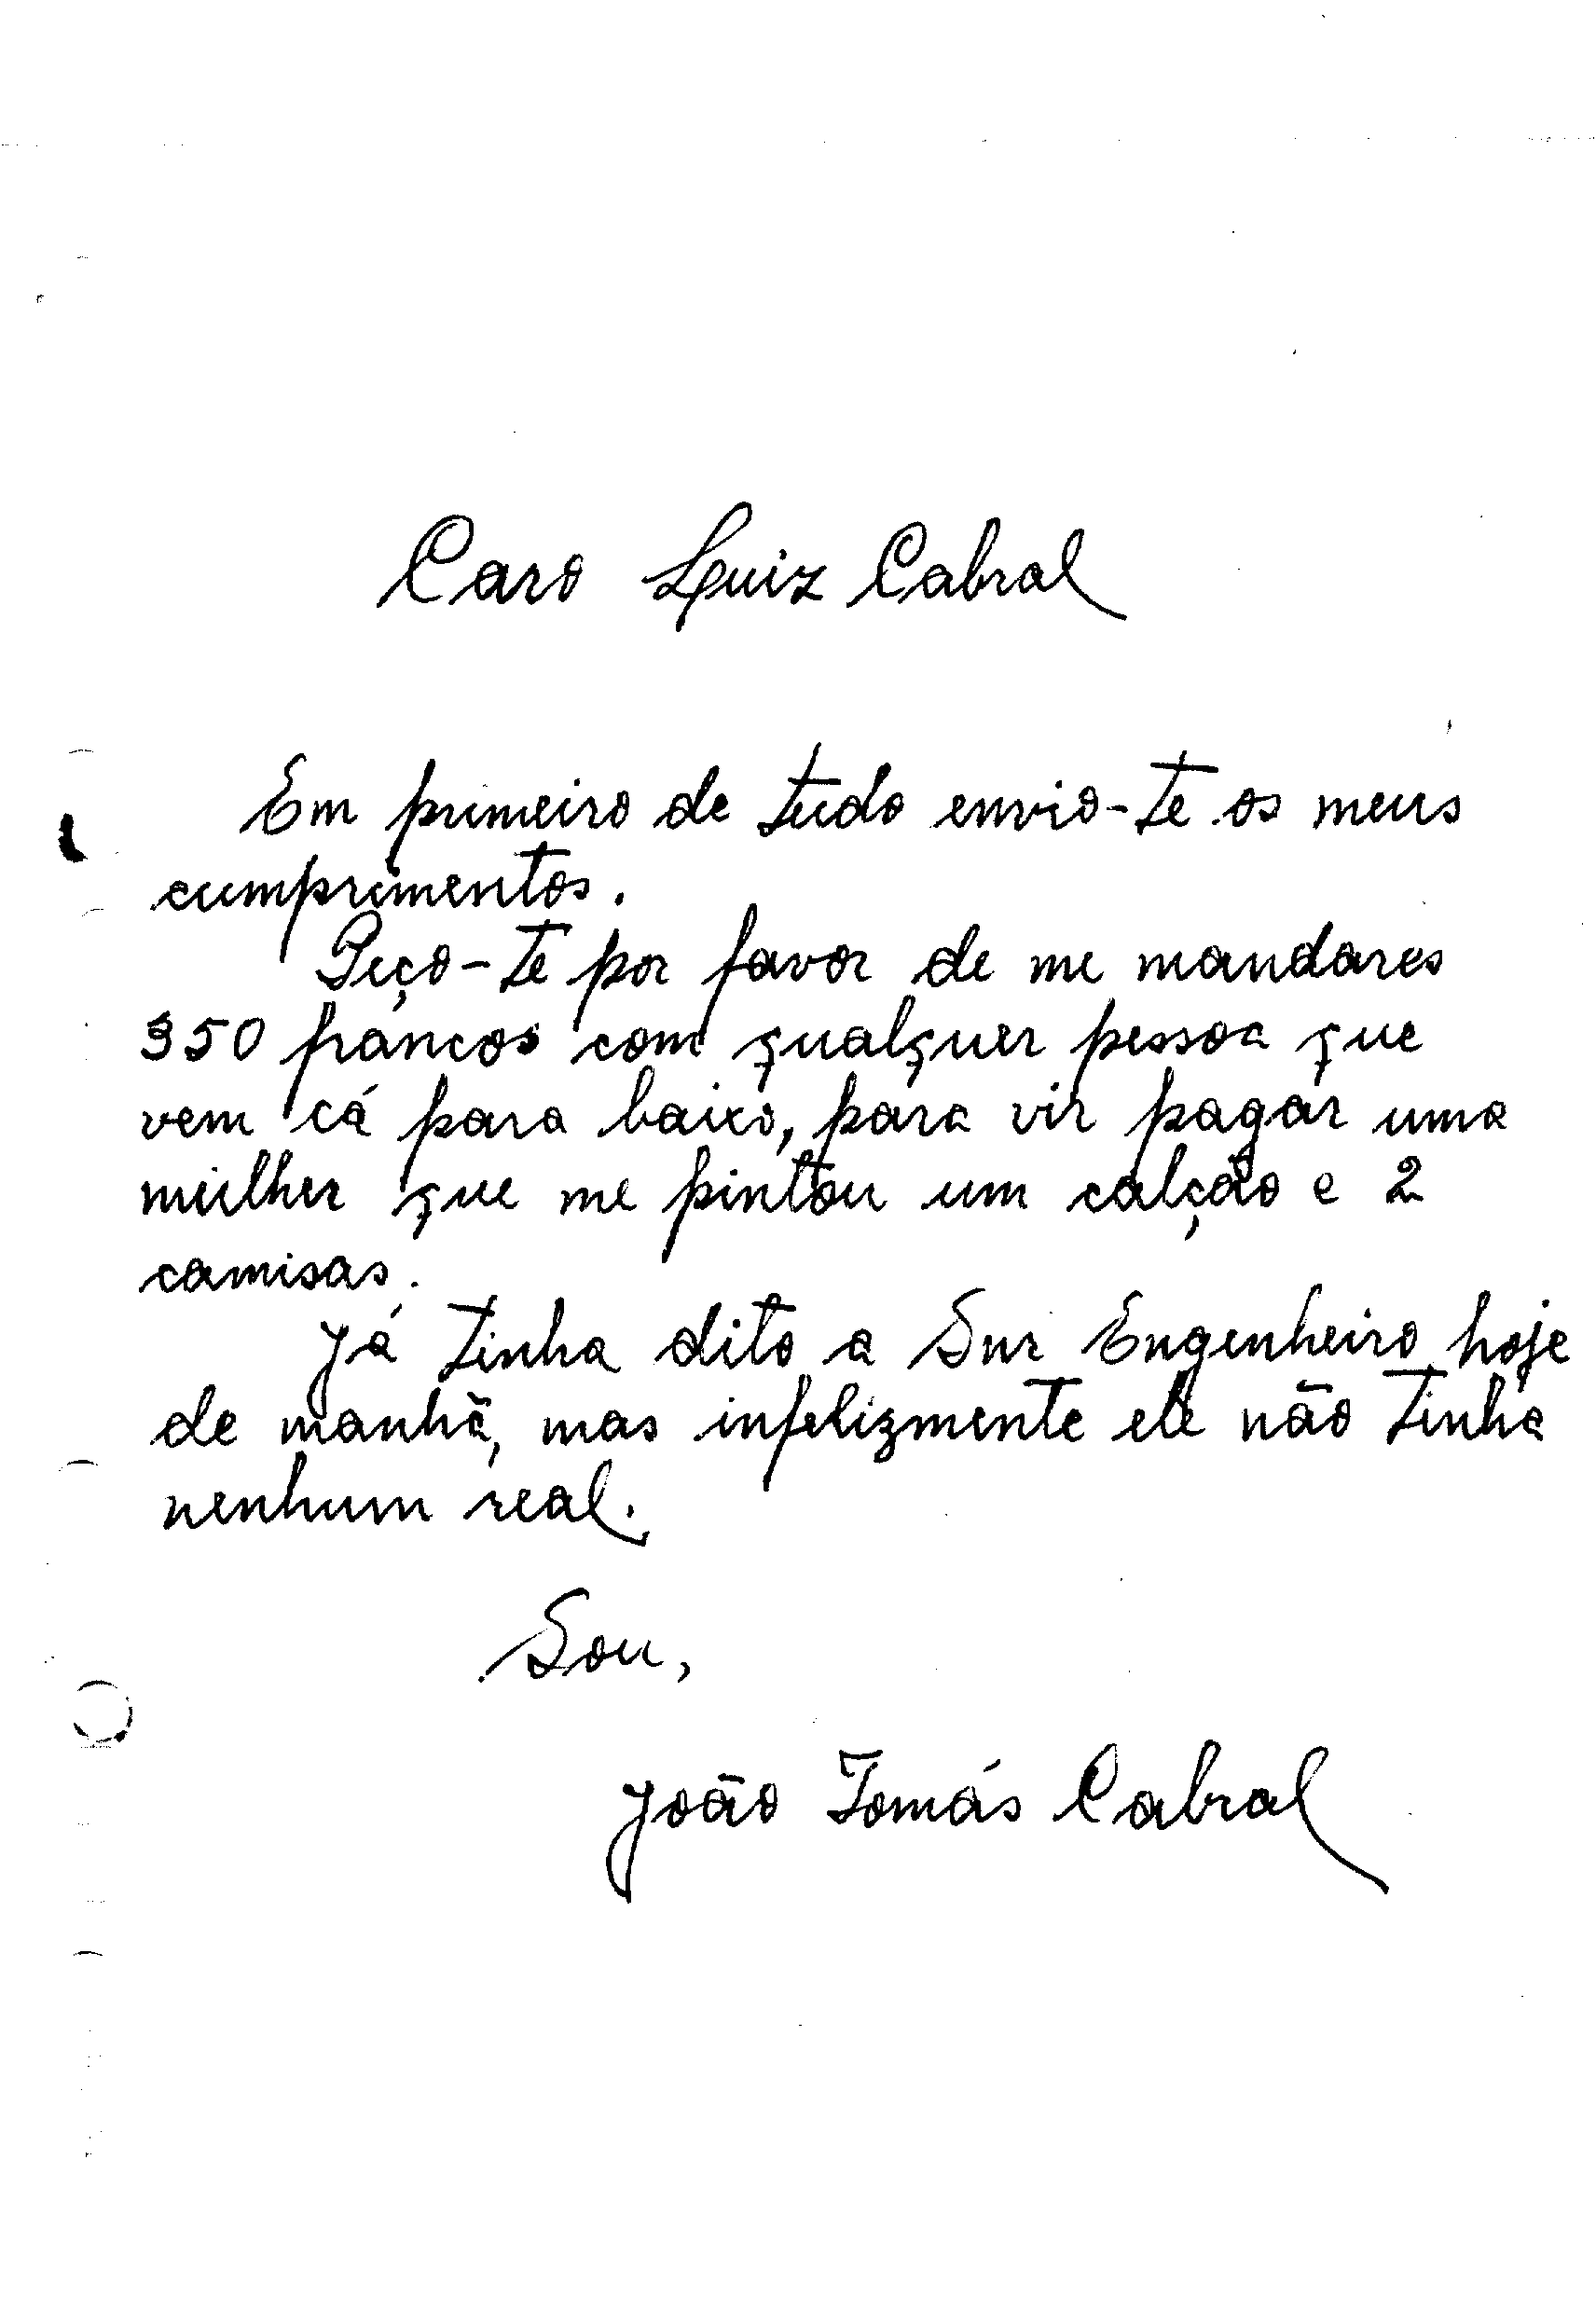 Caro Luiz Cabral
Em primeiro de tudo envio-te os meus
cumprimentos.
Peço-te por favor de me mandares
350 francos com qualquer pessoa que
vem cá para baixo, para vir pagar uma
mulher que me pintou um calção e 2
camisas.
Já tinha dito a Snr Engenheiro hoje
de manhã, mas infelizmente ele não tinha
nenhum real.
Sou,
João Tomás Cabral